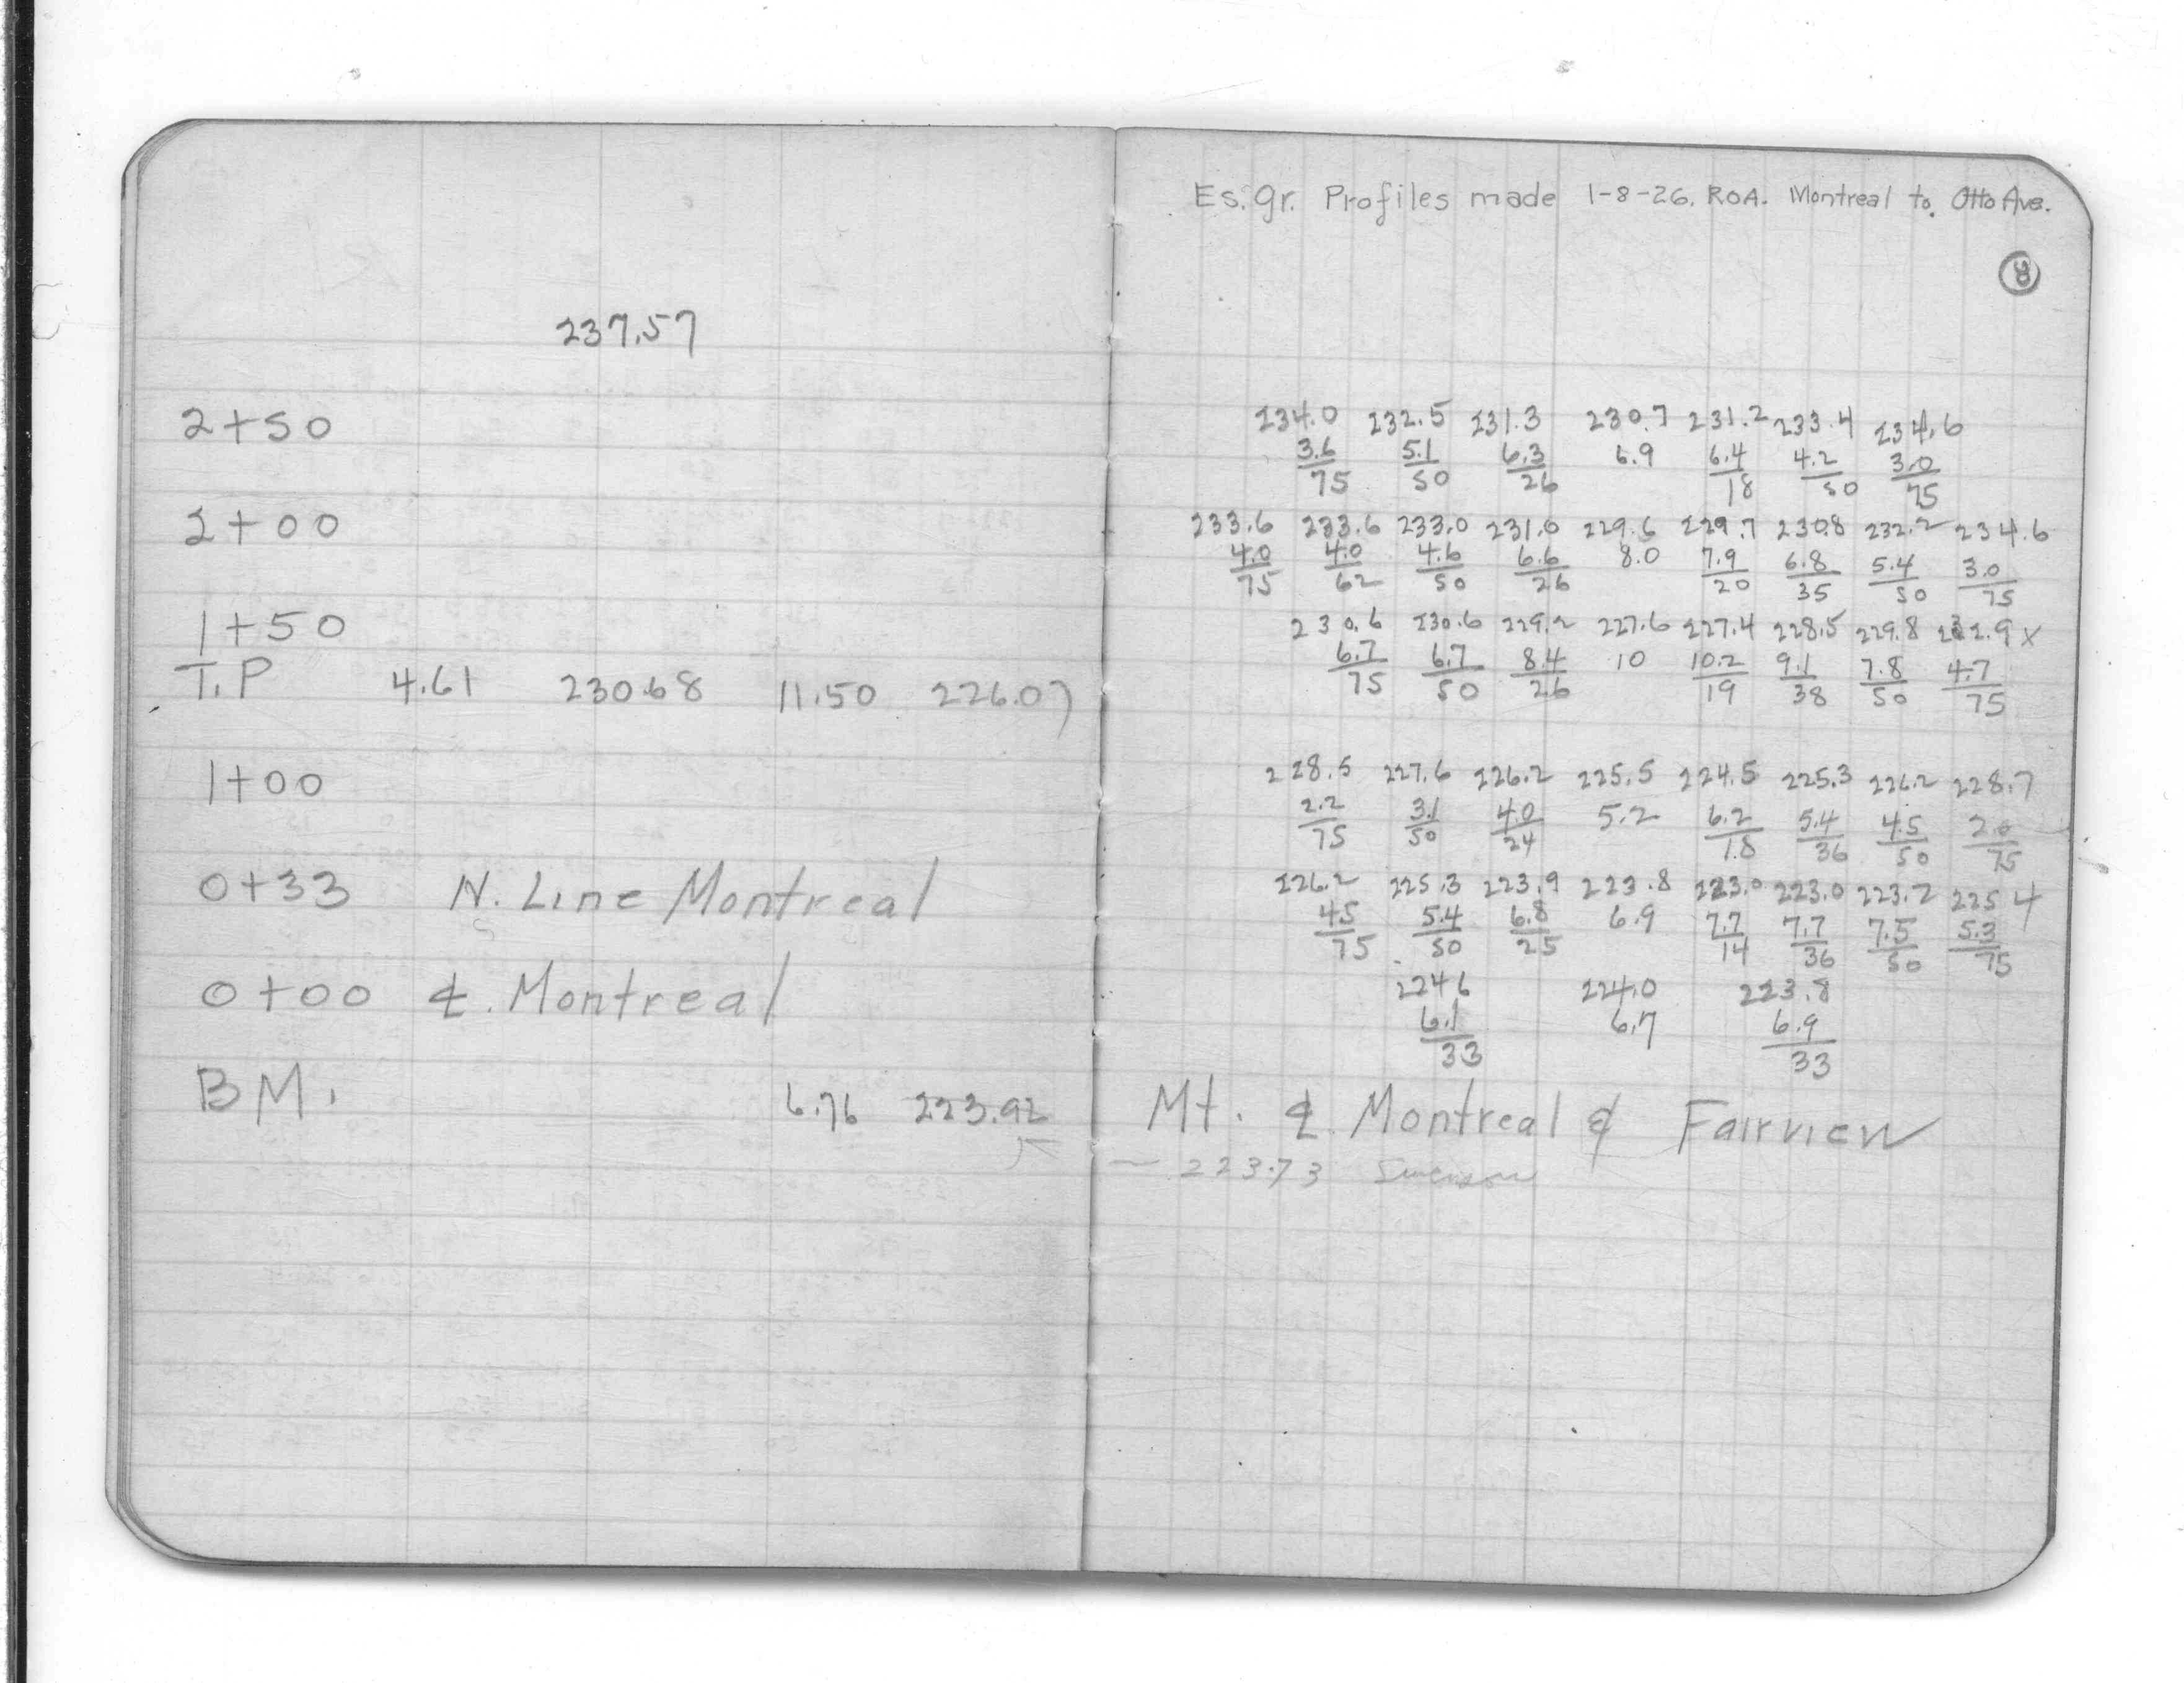 Es. gr. Profiles made 1-8-26. ROA. Montreal to. Otto Ave.
8
237.57
2+50 234.0 232.5 231.3 230.7 231.2 233.4 234.6
3.6 5.1 6.3 6.9 6.4 4.2 3.0
75 50 26 18 50 75
2+00 233.6 233.6 233.0 231.0 229.6 229.7 230.8 232.2 234.6
4.0 4.0 4.6 6.6 8.0 7.9 6.8 5.4 3.0
75 62 50 26 20 35 50 75
1+50 230.6 230.6 229.2 227.6 227.4 228.5 229.8 232.9 x
6.7 6.7 8.4 10 10.2 9.1 7.8 4.7
75 50 26 19 38 50 75
T.P 4.61 230.68 11.50 226.07
1+00 228.5 227.6 226.2 225.5 224.5 225.3 226.2 228.7
2.2 3.1 4.0 5.2 6.2 5.4 4.5 2.0
75 50 24 18 36 50 75
0+33 N. Line Montreal 226.2 225.3 223.9 223.8 223.0 223.0 223.2 225.4
4.5 5.4 6.8 6.9 7.7 7.7 7.5 5.3
75 50 25 14 36 50 75
0+00 ℄. Montreal 224.6 224.0 223.8
6.1 6.7 6.9
33 33
BM. 6.76 223.92 Mt. ℄. Montreal ℄ Fairview
— 223.73 Swenson